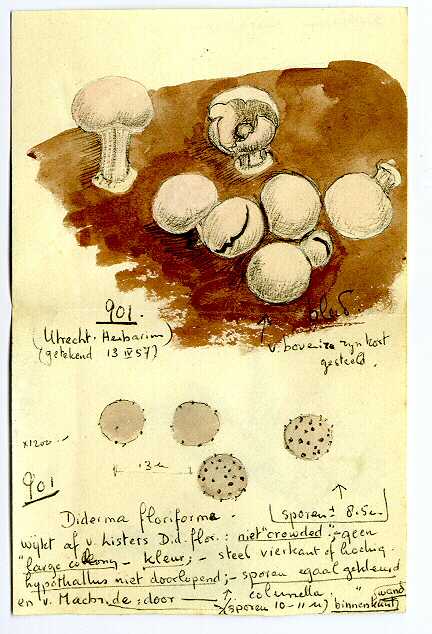 901.
(Utrecht. Herbarium)
(getekend 13 IV 57)
op blad
v. boven; ze zijn kort
gesteeld.
x1200
13 u
901
sporen ± 8.5u
Diderma floriforme.
wijkt af v. Listers Did. flor.: niet "crowded"; - geen
"large colony - kleur; - steel vierkant of hoekig.
hypothallus niet doorlopend; - sporen egaal gekleurd
en v. Macbr. de: door columella. " wand
(sporen 10-11 u) binnenkant